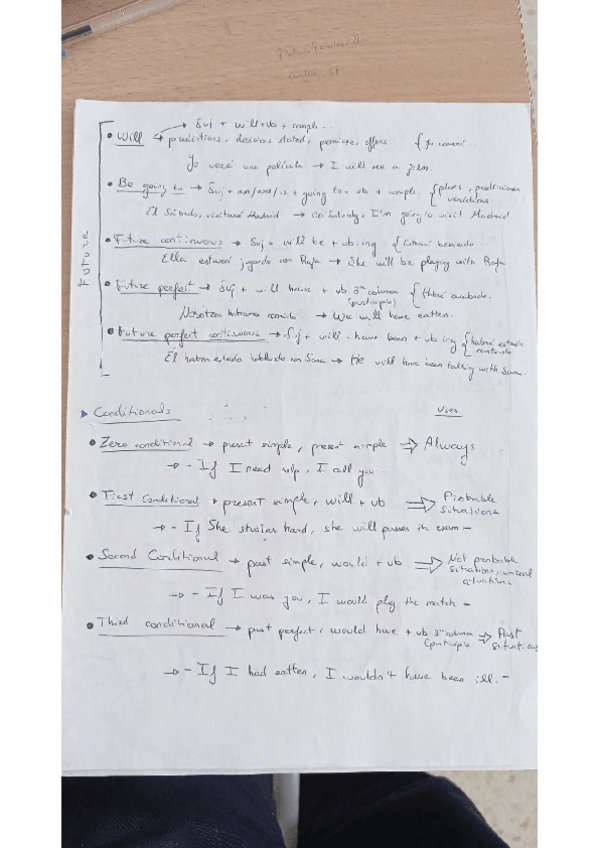 Suj + will + vb + compl...
• Will → predictions, decisions stated, promises, offers. {Yo comeré...
Yo veré una película → I will see a film.
• Be going to → Suj + am/are/is + going to + vb + compl. {plans, predicciones
verídicas.
El Sábado, visitaré Madrid → On Saturday, I'm going to visit Madrid
Future
• Future continuous → Suj + will be + vb.ing {Estaré bebiendo...
Ella estará jugando con Rafa → She will be playing with Rafa
• Future perfect → Suj + will have + vb 3ª columna {Habré acabado.
(participio)
Nosotros habremos comido → We will have eatten.
• Future perfect continuous → Suj + will have been + vb ing {habré estado
Él habrá estado hablando con Sara → He will have been talking with Sara.
Conditionals
Uses
• Zero conditional → present simple, present simple ⇒ Always
→ - If I need help, I call you
• First Conditional → present simple, will + vb ⇒ Probable
situations
→ - If She studies hard, she will passes the exam -
• Second Conditional → past simple, would + vb ⇒ Not probable
situations, unreal
situations
→ - If I was you, I would play the match -
• Third conditional → past perfect, would have + vb 3ª columna ⇒ Past
(participio) situations
→ - If I had eatten, I wouldn't have been ill. -